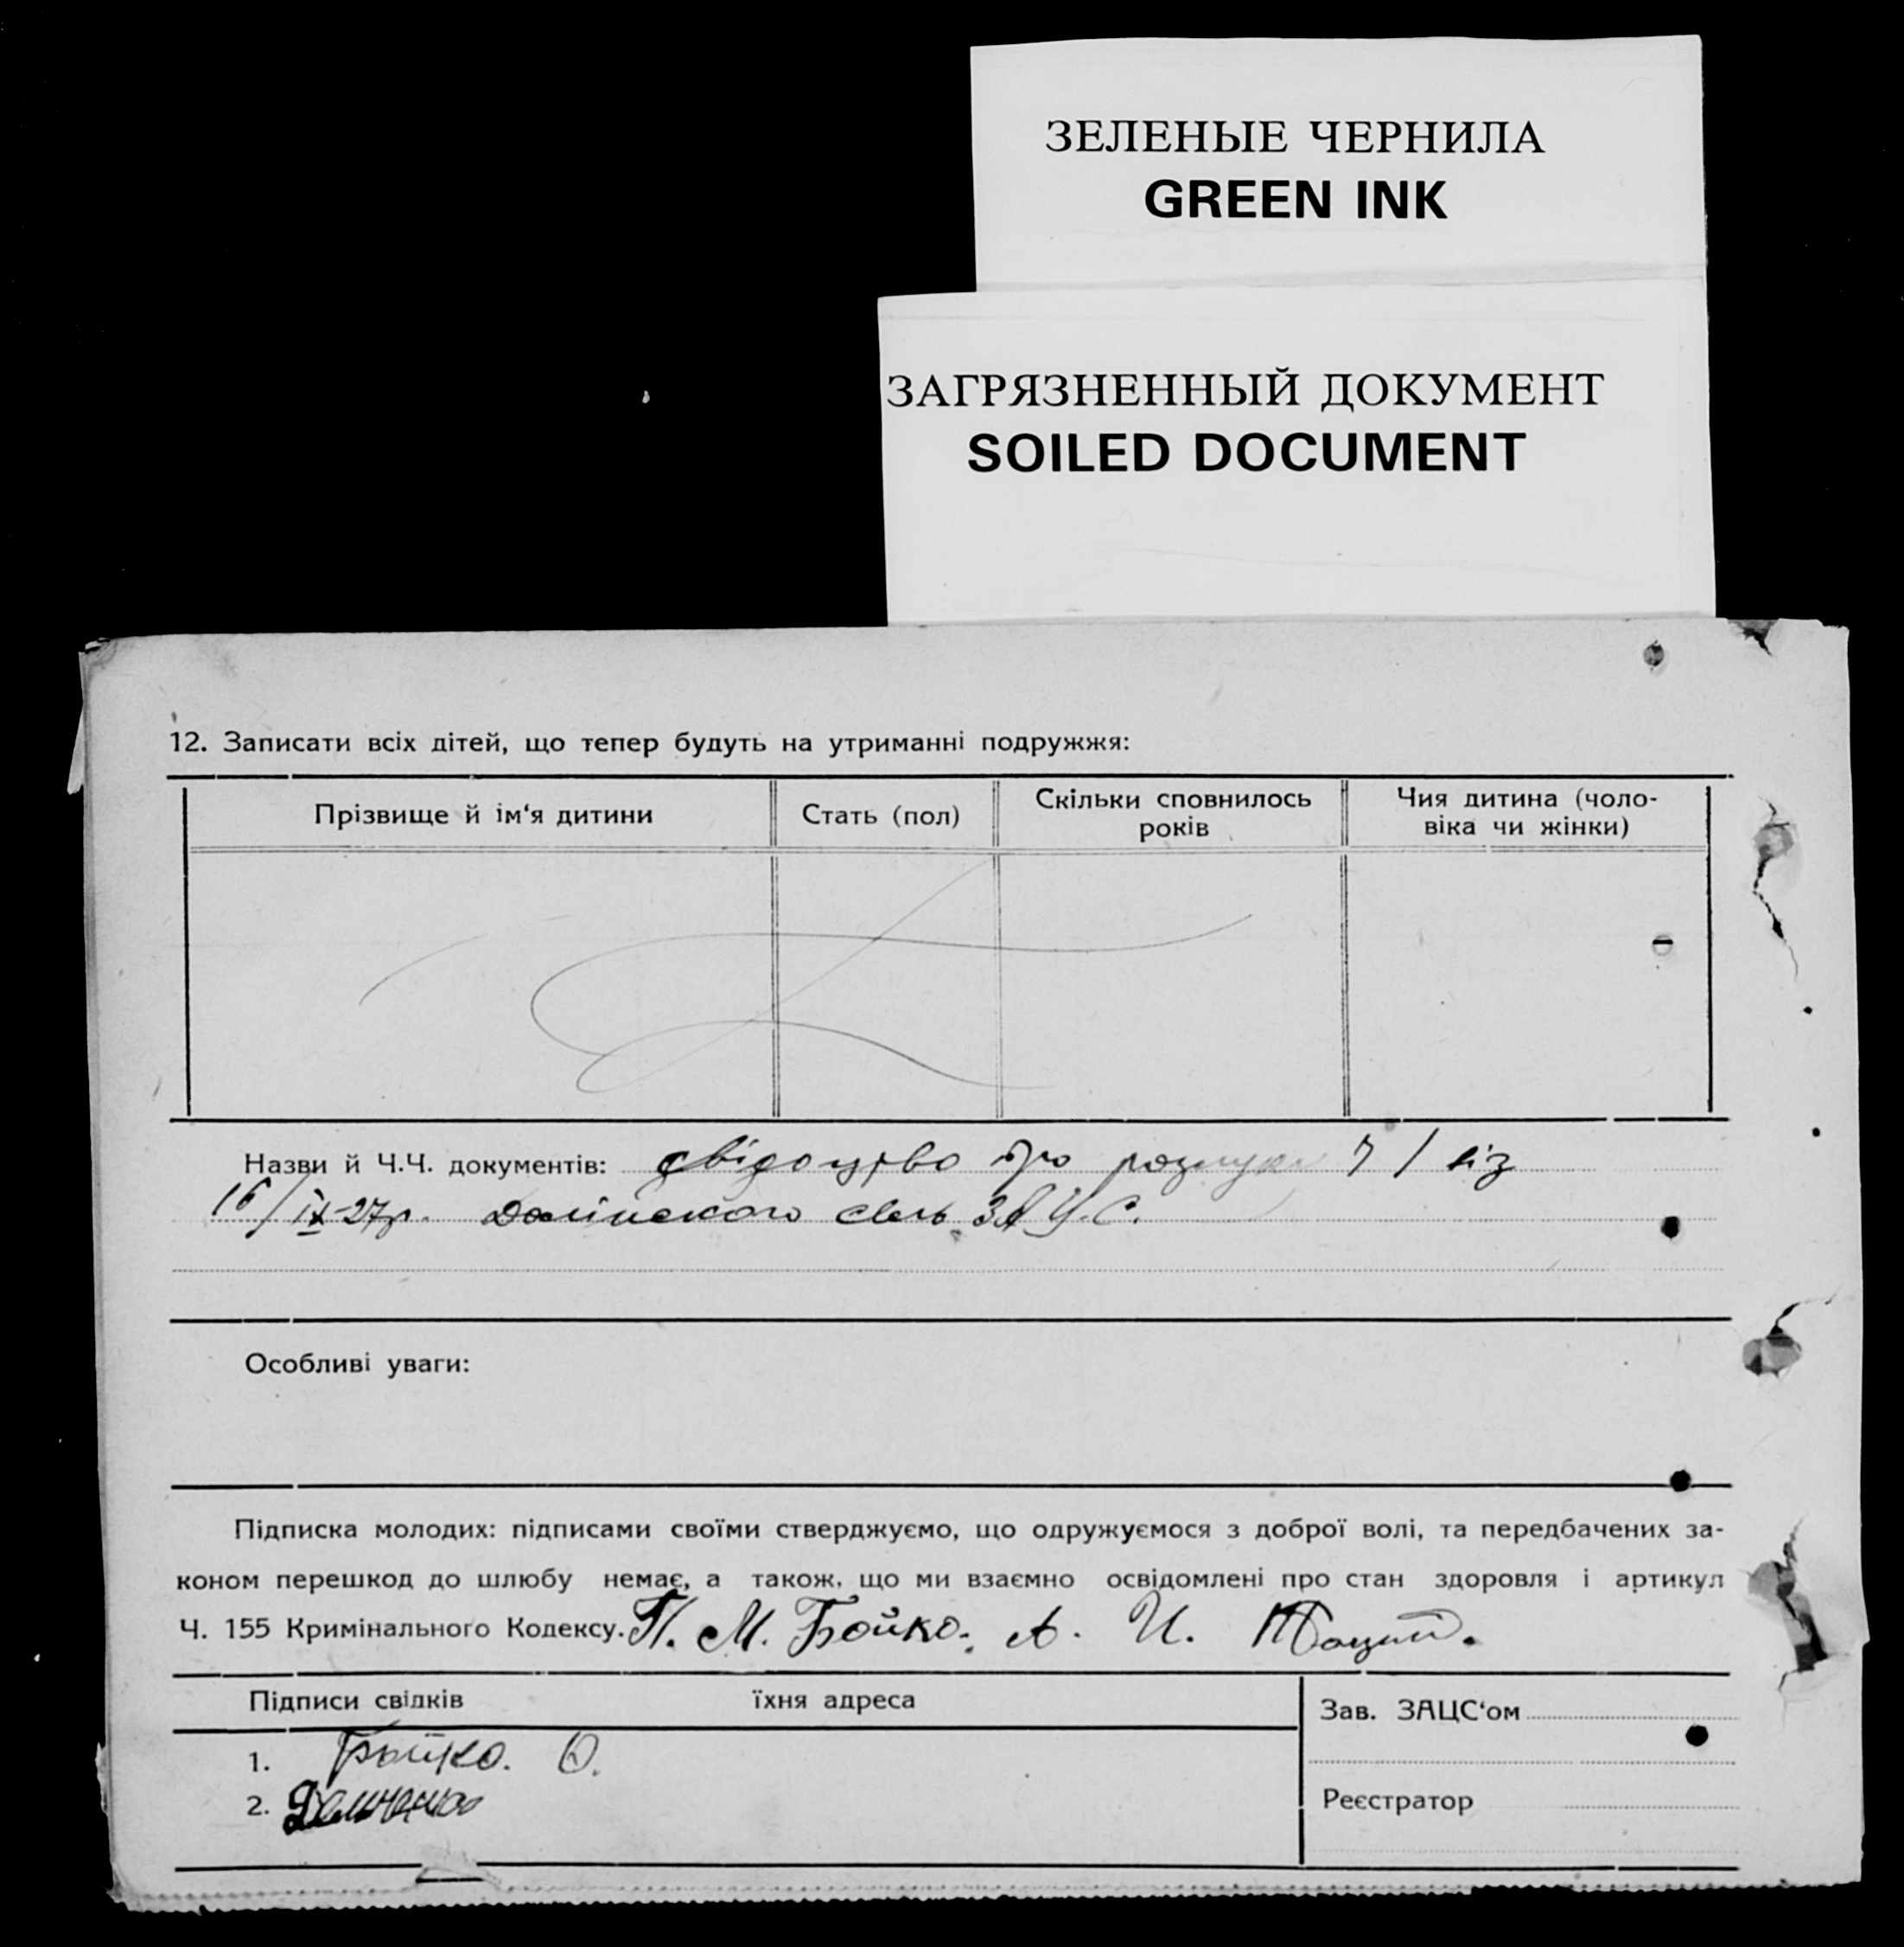 ЗЕЛЕНЫЕ ЧЕРНИЛА
GREEN INK
ЗАГРЯЗНЕННЫЙ ДОКУМЕНТ
SOILED DOCUMENT
12. Записати всіх дітей, що тепер будуть на утриманні подружжя:
Прізвище й ім‘я дитини
Стать (пол)
Скільки сповнилось
років
Чия дитина (чоло-
віка чи жінки)
Назви й Ч.Ч. документів: свідоцтво про розлуку Ч 1 від
16/IX-27р. Долінского сель ЗАЦС.
Особливі уваги:
Підписка молодих: підписами своїми стверджуємо, що одружуємося з доброї волі, та передбачених за-
коном перешкод до шлюбу немає, а також, що ми взаємно освідомлені про стан здоровля і артикул
Ч. 155 Кримінального Кодексу. П. М. Бойко. А. И.
Підписи свідків їхня адреса
1. Бойко. О.
2.
Зав. ЗАЦС‘ом
Реєстратор